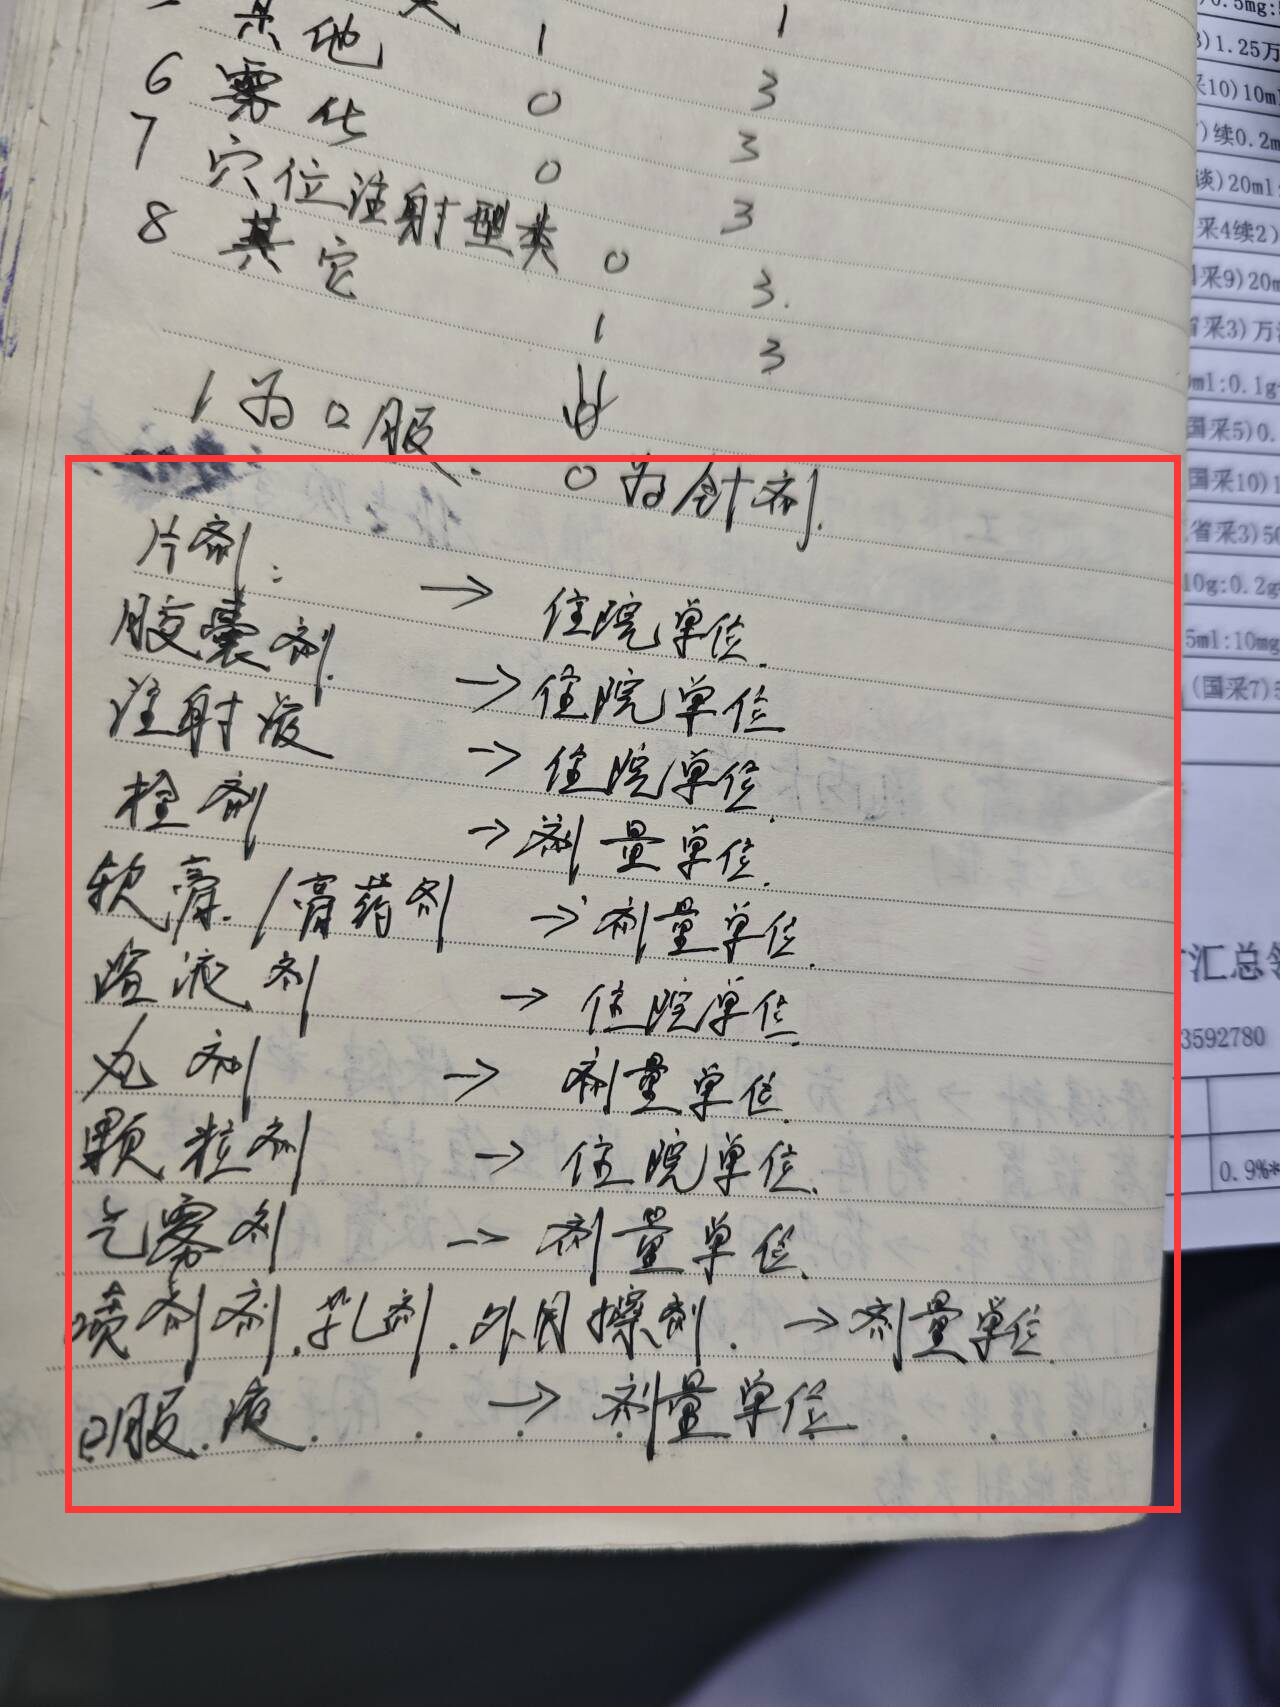 其他 1 1
6 雾化 0 3
7 穴位注射型类 0 3
8 其它 0 3
3.
1 3
1为口服.
0为针剂.
片剂: → 住院单位.
胶囊剂. → 住院单位
注射液 → 住院单位.
栓剂 → 剂量单位.
软膏./膏药剂 → 剂量单位.
溶液剂 → 住院单位.
丸剂 → 剂量单位.
颗粒剂 → 住院单位.
气雾剂 → 剂量单位.
喷剂剂.乳剂.外用擦剂. → 剂量单位.
口服.液. → 剂量单位
0.5mg:
)1.25万
采10)10ml
)续0.2m
谈)20ml:
采4续2)
采9)20m
省采3)万
ml:0.1g
国采5)0.
国采10)1
省采3)50
10g:0.2g
5ml:10mg
(国采7)5
汇总领
3592780
0.9%*